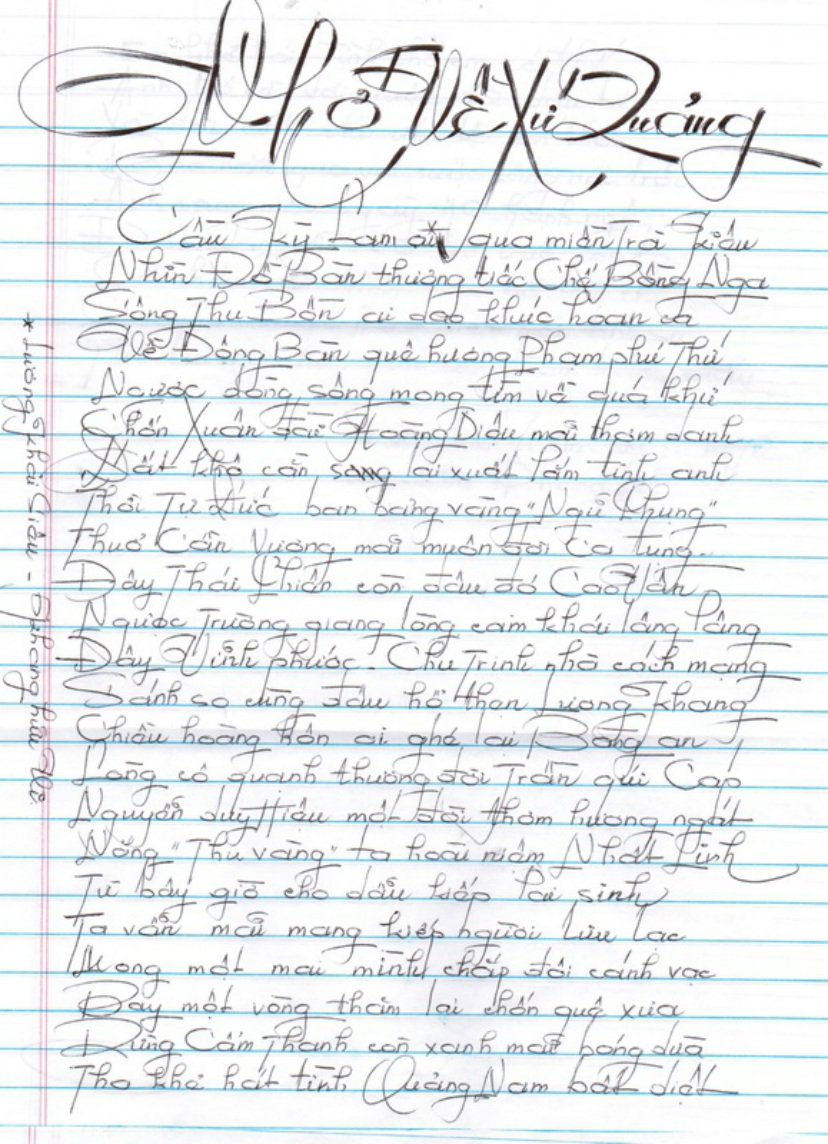 Nhớ Về Xứ Quảng
Cầu Kỳ Lam ai qua miền Trà Kiệu
Nhìn Đồ Bàn thương tiếc Chế Bồng Nga
Sông Thu Bồn ai dạo khúc hoan ca
Về Đông Bàn quê hương Phạm phú Thứ
Ngược dòng sông mong tìm về quá khứ
Chốn Xuân Đài Hoàng Diệu mãi thơm danh
Đất khô cằn lại xuất lắm tinh anh
Thời Tự Đức ban bảng vàng "Ngũ Phụng"
Thuở Cần Vương mãi muôn đời Ca tụng..
Đây Thái Phiên còn đâu đó Cao Vân
Ngược Trường giang lòng cảm khái lâng lâng
Đây Vĩnh phước. Chu Trinh nhà cách mạng
Sánh so cùng đâu hổ thẹn Lương Khang*
Chiều hoàng hôn ai ghé lại Bằng an
Lòng cô quạnh thương đời Trần quí Cáp
Nguyễn duy Hiệu một đời thơm hương ngát
Nắng "Thu vàng" ta hoài niệm Nhất Linh
Từ bây giờ cho dẫu kiếp lai sinh
Ta vẫn mãi mang kiếp người lưu lạc
Mong một mai mình chắp đôi cánh vạc
Bay một vòng thăm lại chốn quê xưa
Rừng Cẩm Thanh còn xanh mãi bóng dừa
Thơ khẽ hát tình Quảng Nam bất diệt
* Lương Khải Siêu - Khang hữu Vi